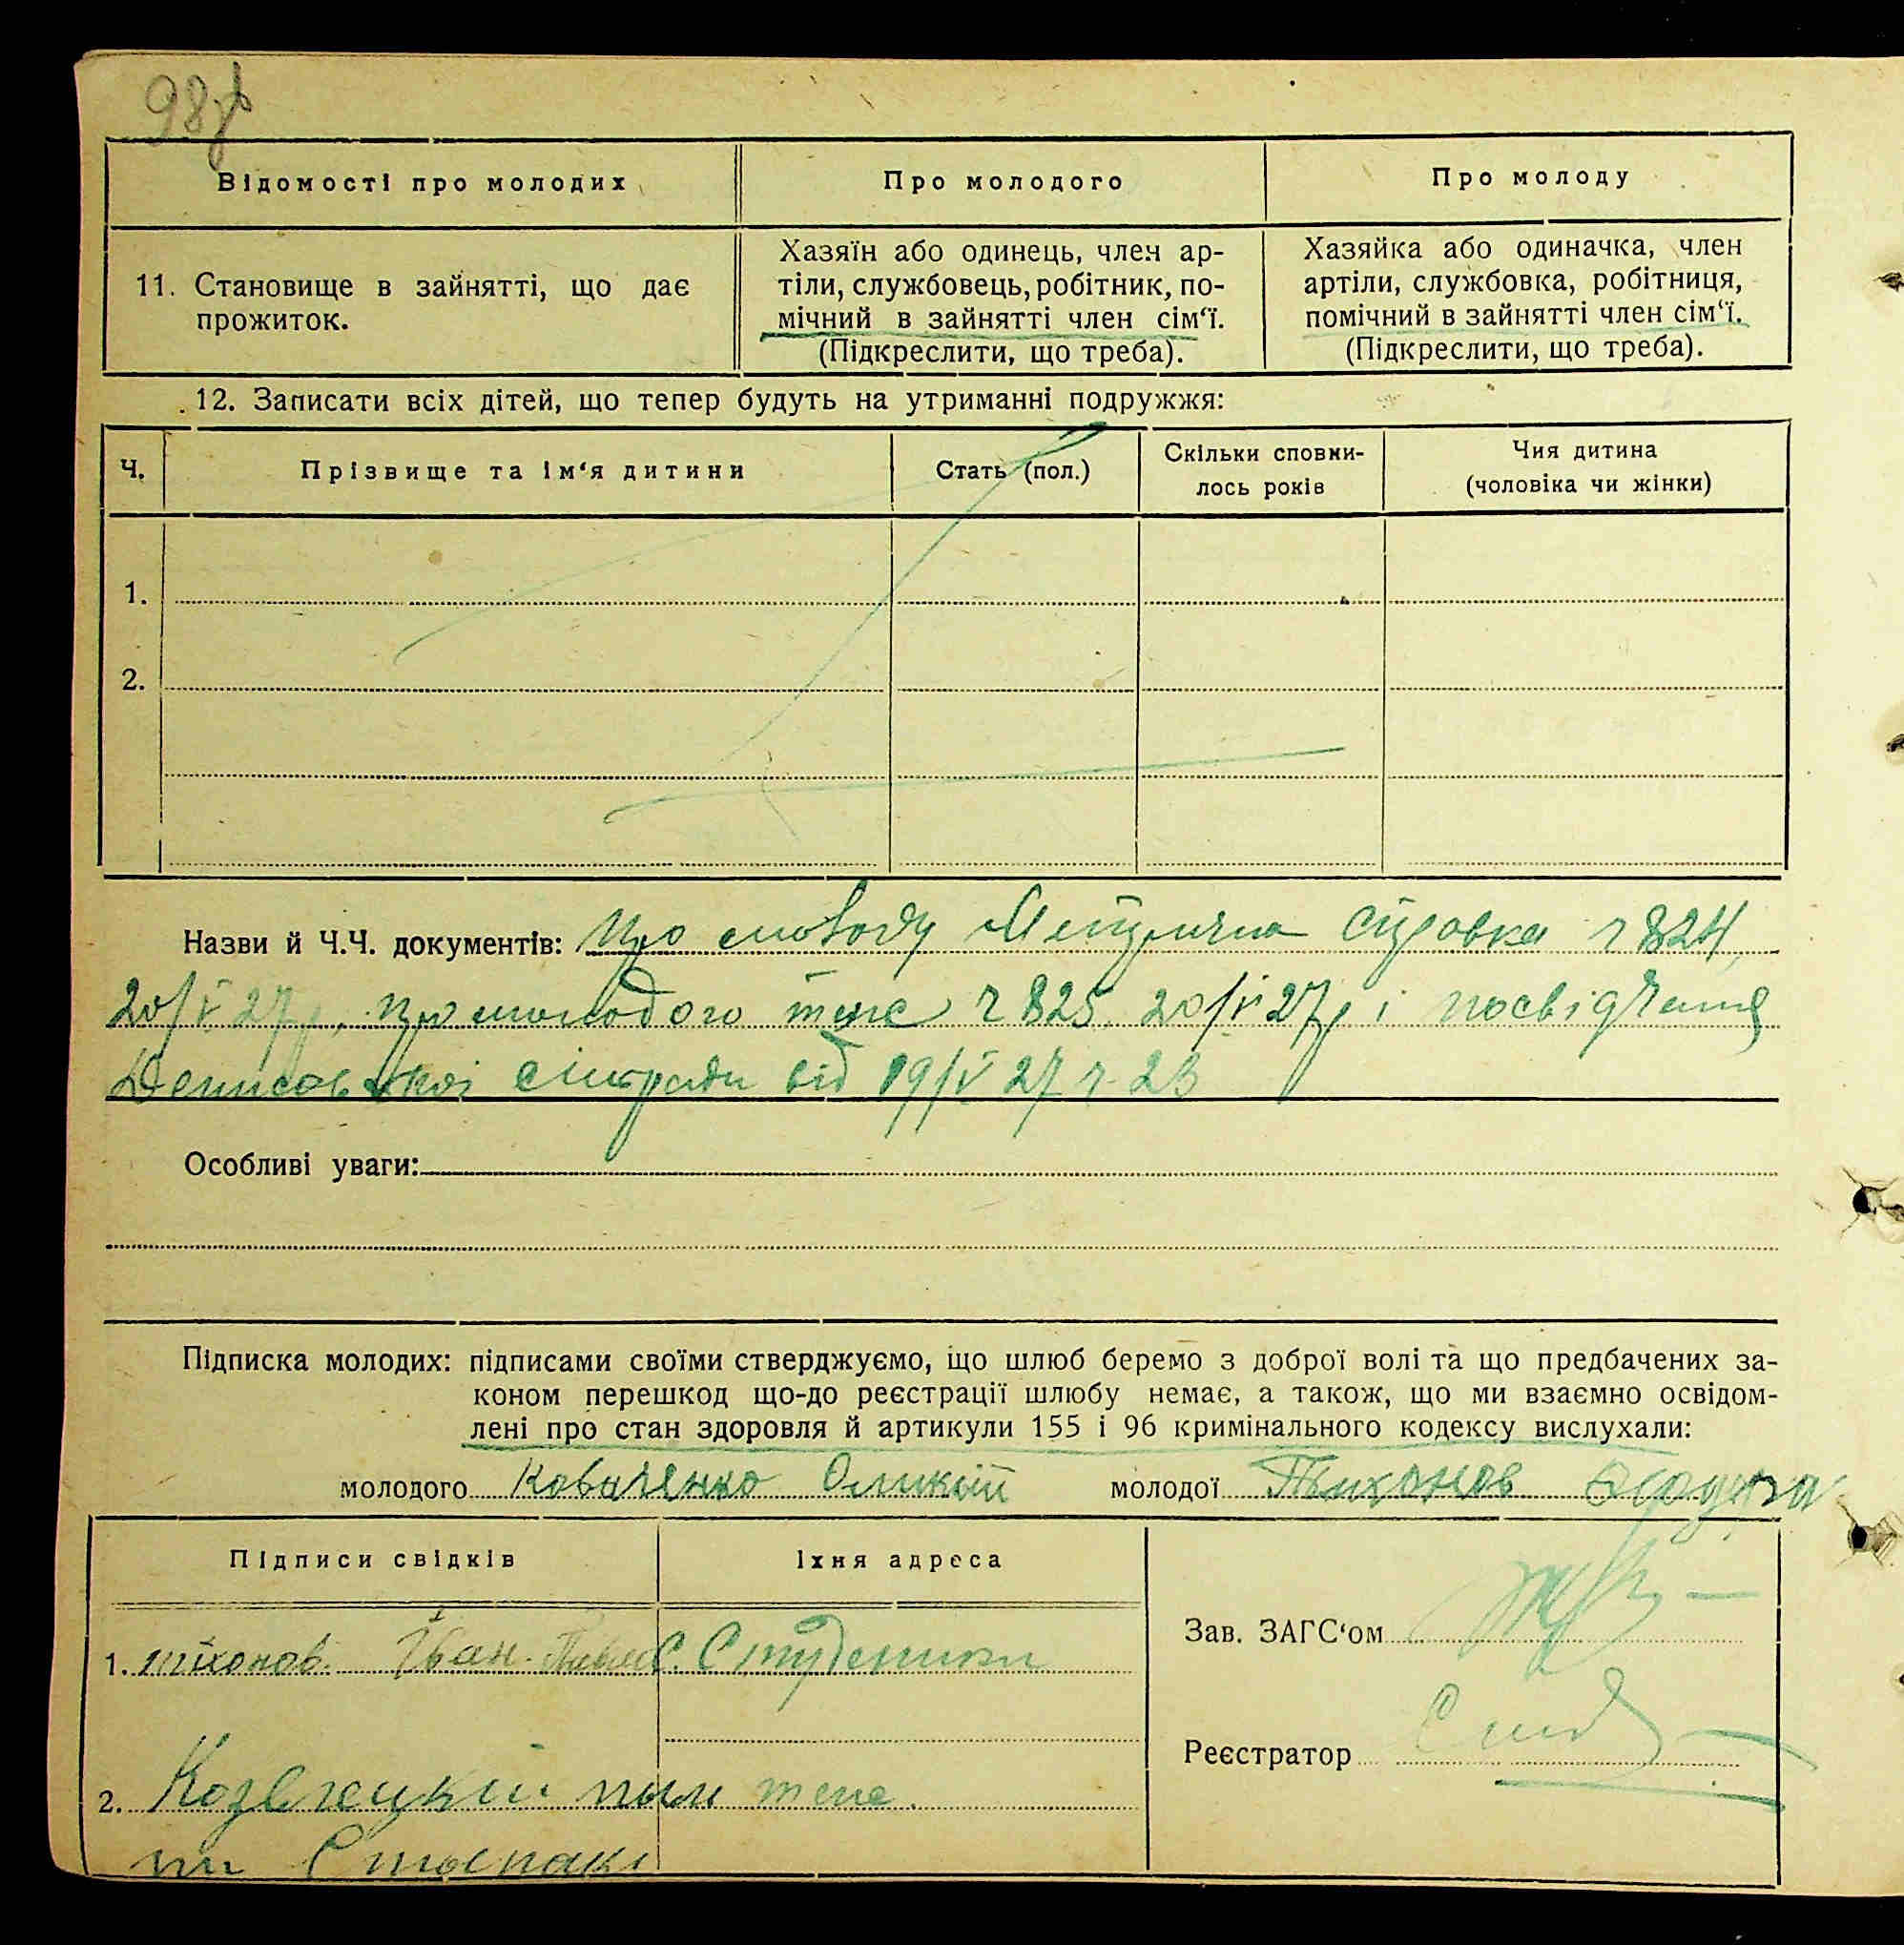 98
Відомості про молодих
Про молодого
Про молоду
11. Становище в зайнятті, що дає
прожиток.
Хазяїн або одинець, член ар-
тіли, службовець, робітник, по-
мічний в зайнятті член сім‘ї.
(Підкреслити, що треба).
Хазяйка або одиначка, член
артіли, службовка, робітниця,
помічний в зайнятті член сім‘ї.
(Підкреслити, що треба).
12. Записати всіх дітей, що тепер будуть на утриманні подружжя:
Ч.
Прізвище та ім‘я дитини
Стать (пол.)
Скільки сповни-
лось років
Чия дитина
(чоловіка чи жінки)
1.
2.
Назви й Ч.Ч. документів: Про молоду Метрична справка ч 824,
20/V 27 р, про молодого теж ч 825, 20/V 27 р і посвідчення
Денисовської сільради від 19/V 27 ч 23
Особливі уваги:
Підписка молодих: підписами своїми стверджуємо, що шлюб беремо з доброї волі та що предбачених за-
коном перешкод що-до реєстрації шлюбу немає, а також, що ми взаємно освідом-
лені про стан здоровля й артикули 155 і 96 кримінального кодексу вислухали:
молодого Коваченко молодої
Підписи свідків
Їхня адреса
1. тіхонов. Іван. с. Студеники
2. теж
Зав. ЗАГС‘ом
Реєстратор